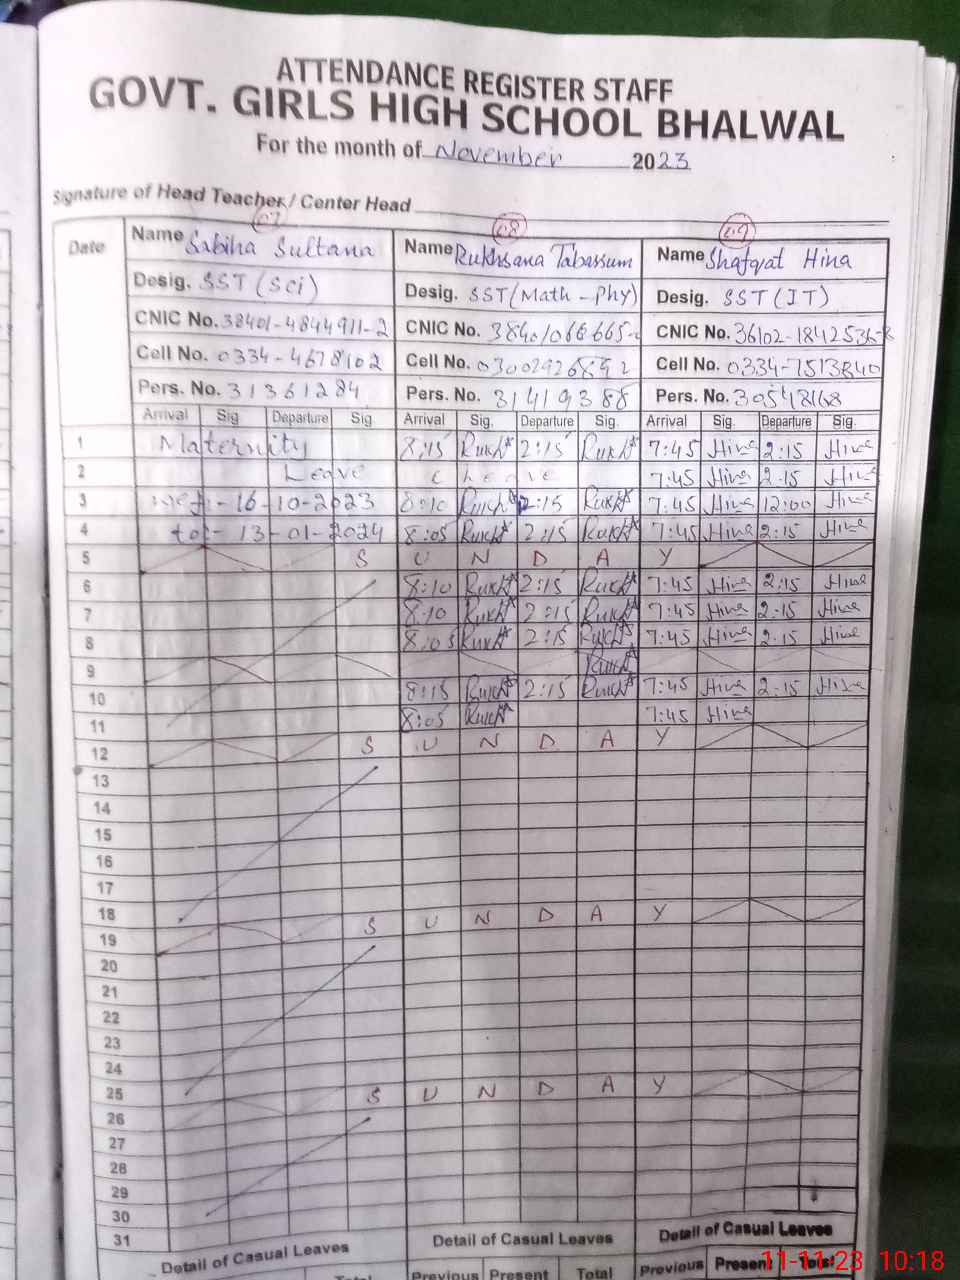 ATTENDANCE REGISTER STAFF
GOVT. GIRLS HIGH SCHOOL BHALWAL
For the month of November 2023
Signature of Head Teacher / Center Head
07 08 09
Date Name Sabiha Sultana Name Rukhsana Tabassum Name Shafqat Hina
Desig. SST (Sci) Desig. SST (Math - Phy) Desig. SST (IT)
CNIC No. 38401-4844911-2 CNIC No. CNIC No. 36102-1842536-8
Cell No. 0334-4678102 Cell No. 03002926892 Cell No. 0334-7513840
Pers. No. 31361284 Pers. No. 31419388 Pers. No. 30548168
Arrival Sig Departure Sig Arrival Sig. Departure Sig. Arrival Sig. Departure Sig.
1 Maternity 8:15 2:15 7:45 Hina 2:15 Hina
2 Leave Leave 7:45 Hina 2:15 Hina
3 16-10-2023 8:10 2:15 7:45 Hina 12:00 Hina
4 to:- 13-01-2024 8:05 2:15 7:45 Hina 2:15 Hina
5 S U N D A Y
6 8:10 2:15 7:45 Hina 2:15 Hina
7 8:10 2:15 7:45 Hina 2:15 Hina
8 8:05 2:15 7:45 Hina 2:15 Hina
9
10 8:15 2:15 7:45 Hina 2:15 Hina
11 8:05 7:45 Hina
12 S U N D A Y
13
14
15
16
17
18
19 S U N D A Y
20
21
22
23
24
25
26 S U N D A Y
27
28
29
30
31
Detail of Casual Leaves Detail of Casual Leaves Detail of Casual Leaves
Total Previous Present Total Previous Present Total
11-11-23 10:18